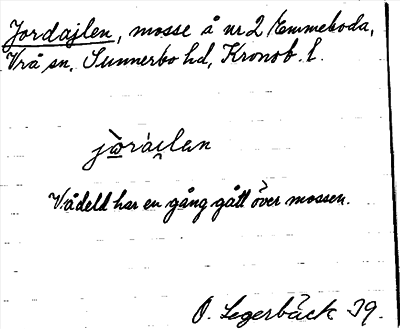 Jordajlen, mosse å nr 2 Emmeboda,
Vrå sn, Sunnerbo hd, Kronob. l.
jòràilan
Vådeld har en gång gått över mossen.
O. Segerbäck 39.